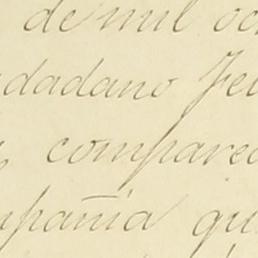 de mil oc
dadano Fe
comparec
mpañia qu